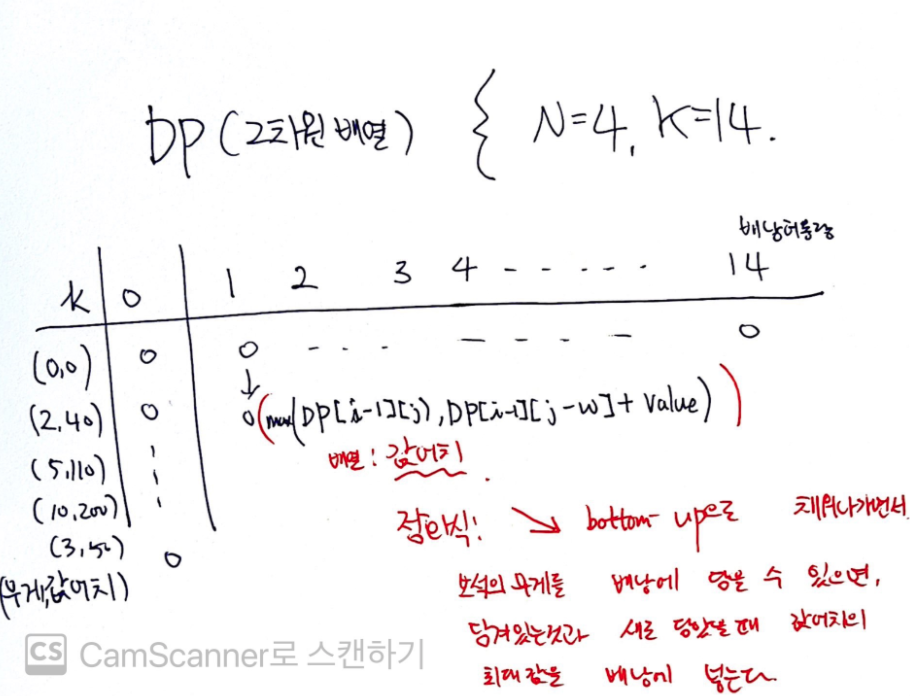 DP (2차원 배열) { N=4, K=14.
배낭허용량
K 0 1 2 3 4 - - - - - · 14
(0,0) 0 0 - - · - - - - 0
(2,40) 0 0 (max(DP[i-1][j), DP[i-1][j-w] + value))
(5,110)
배열: 값어치
(10,200)
점화식! → bottom-up으로 채워나가면서.
(3,50) 0
(무게,값어치)
보석의 무게를 배낭에 담을 수 있으면,
담겨있는것과 새로 담았을 때 값어치의
최대값을 배낭에 넣는다.
CS CamScanner로 스캔하기